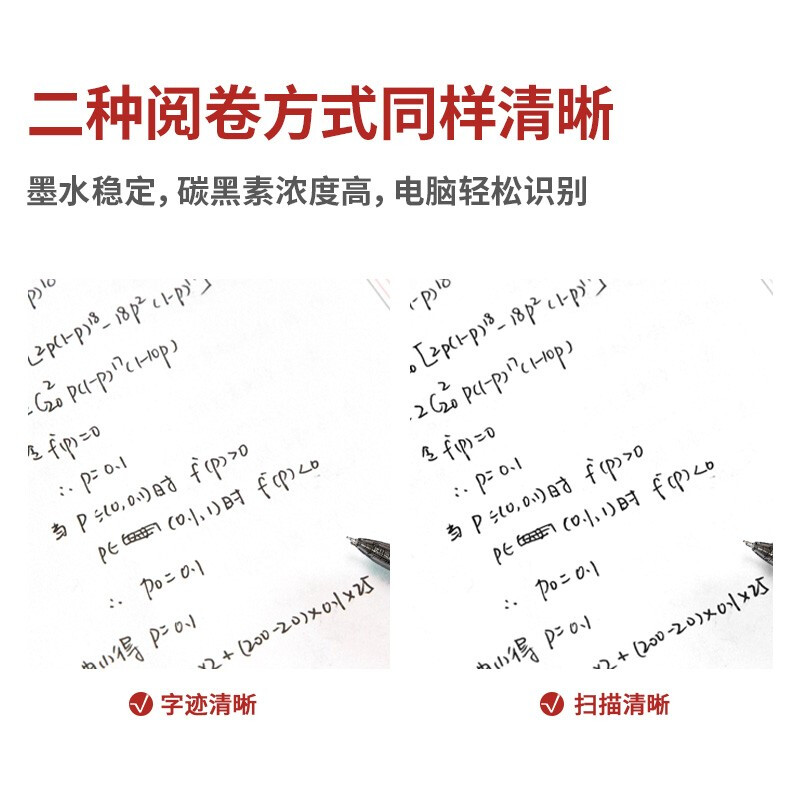 二种阅卷方式同样清晰
墨水稳定，碳黑素浓度高，电脑轻松识别
-p)¹⁸
[2p(1-p)¹⁸-18p²(1-p)¹⁷]
C²₂₀ p(1-p)¹⁷(1-10p)
令 f'(p)=0
∴ p=0.1
当 p=(0,0.1)时 f'(p)>0
p∈ (0.1,1)时 f'(p)<0
∴ p₀=0.1
得 p=0.1
×2+(200-20)×0.1×25
字迹清晰
-p)¹⁸
[2p(1-p)¹⁸-18p²(1-p)¹⁷]
2C²₂₀ p(1-p)¹⁷(1-10p)
令 f'(p)=0
∴ p=0.1
当 p=(0,0.1)时 f'(p)>0
p∈ (0.1,1)时 f'(p)<0
∴ p₀=0.1
得 p=0.1
×2+(200-20)×0.1×25
扫描清晰